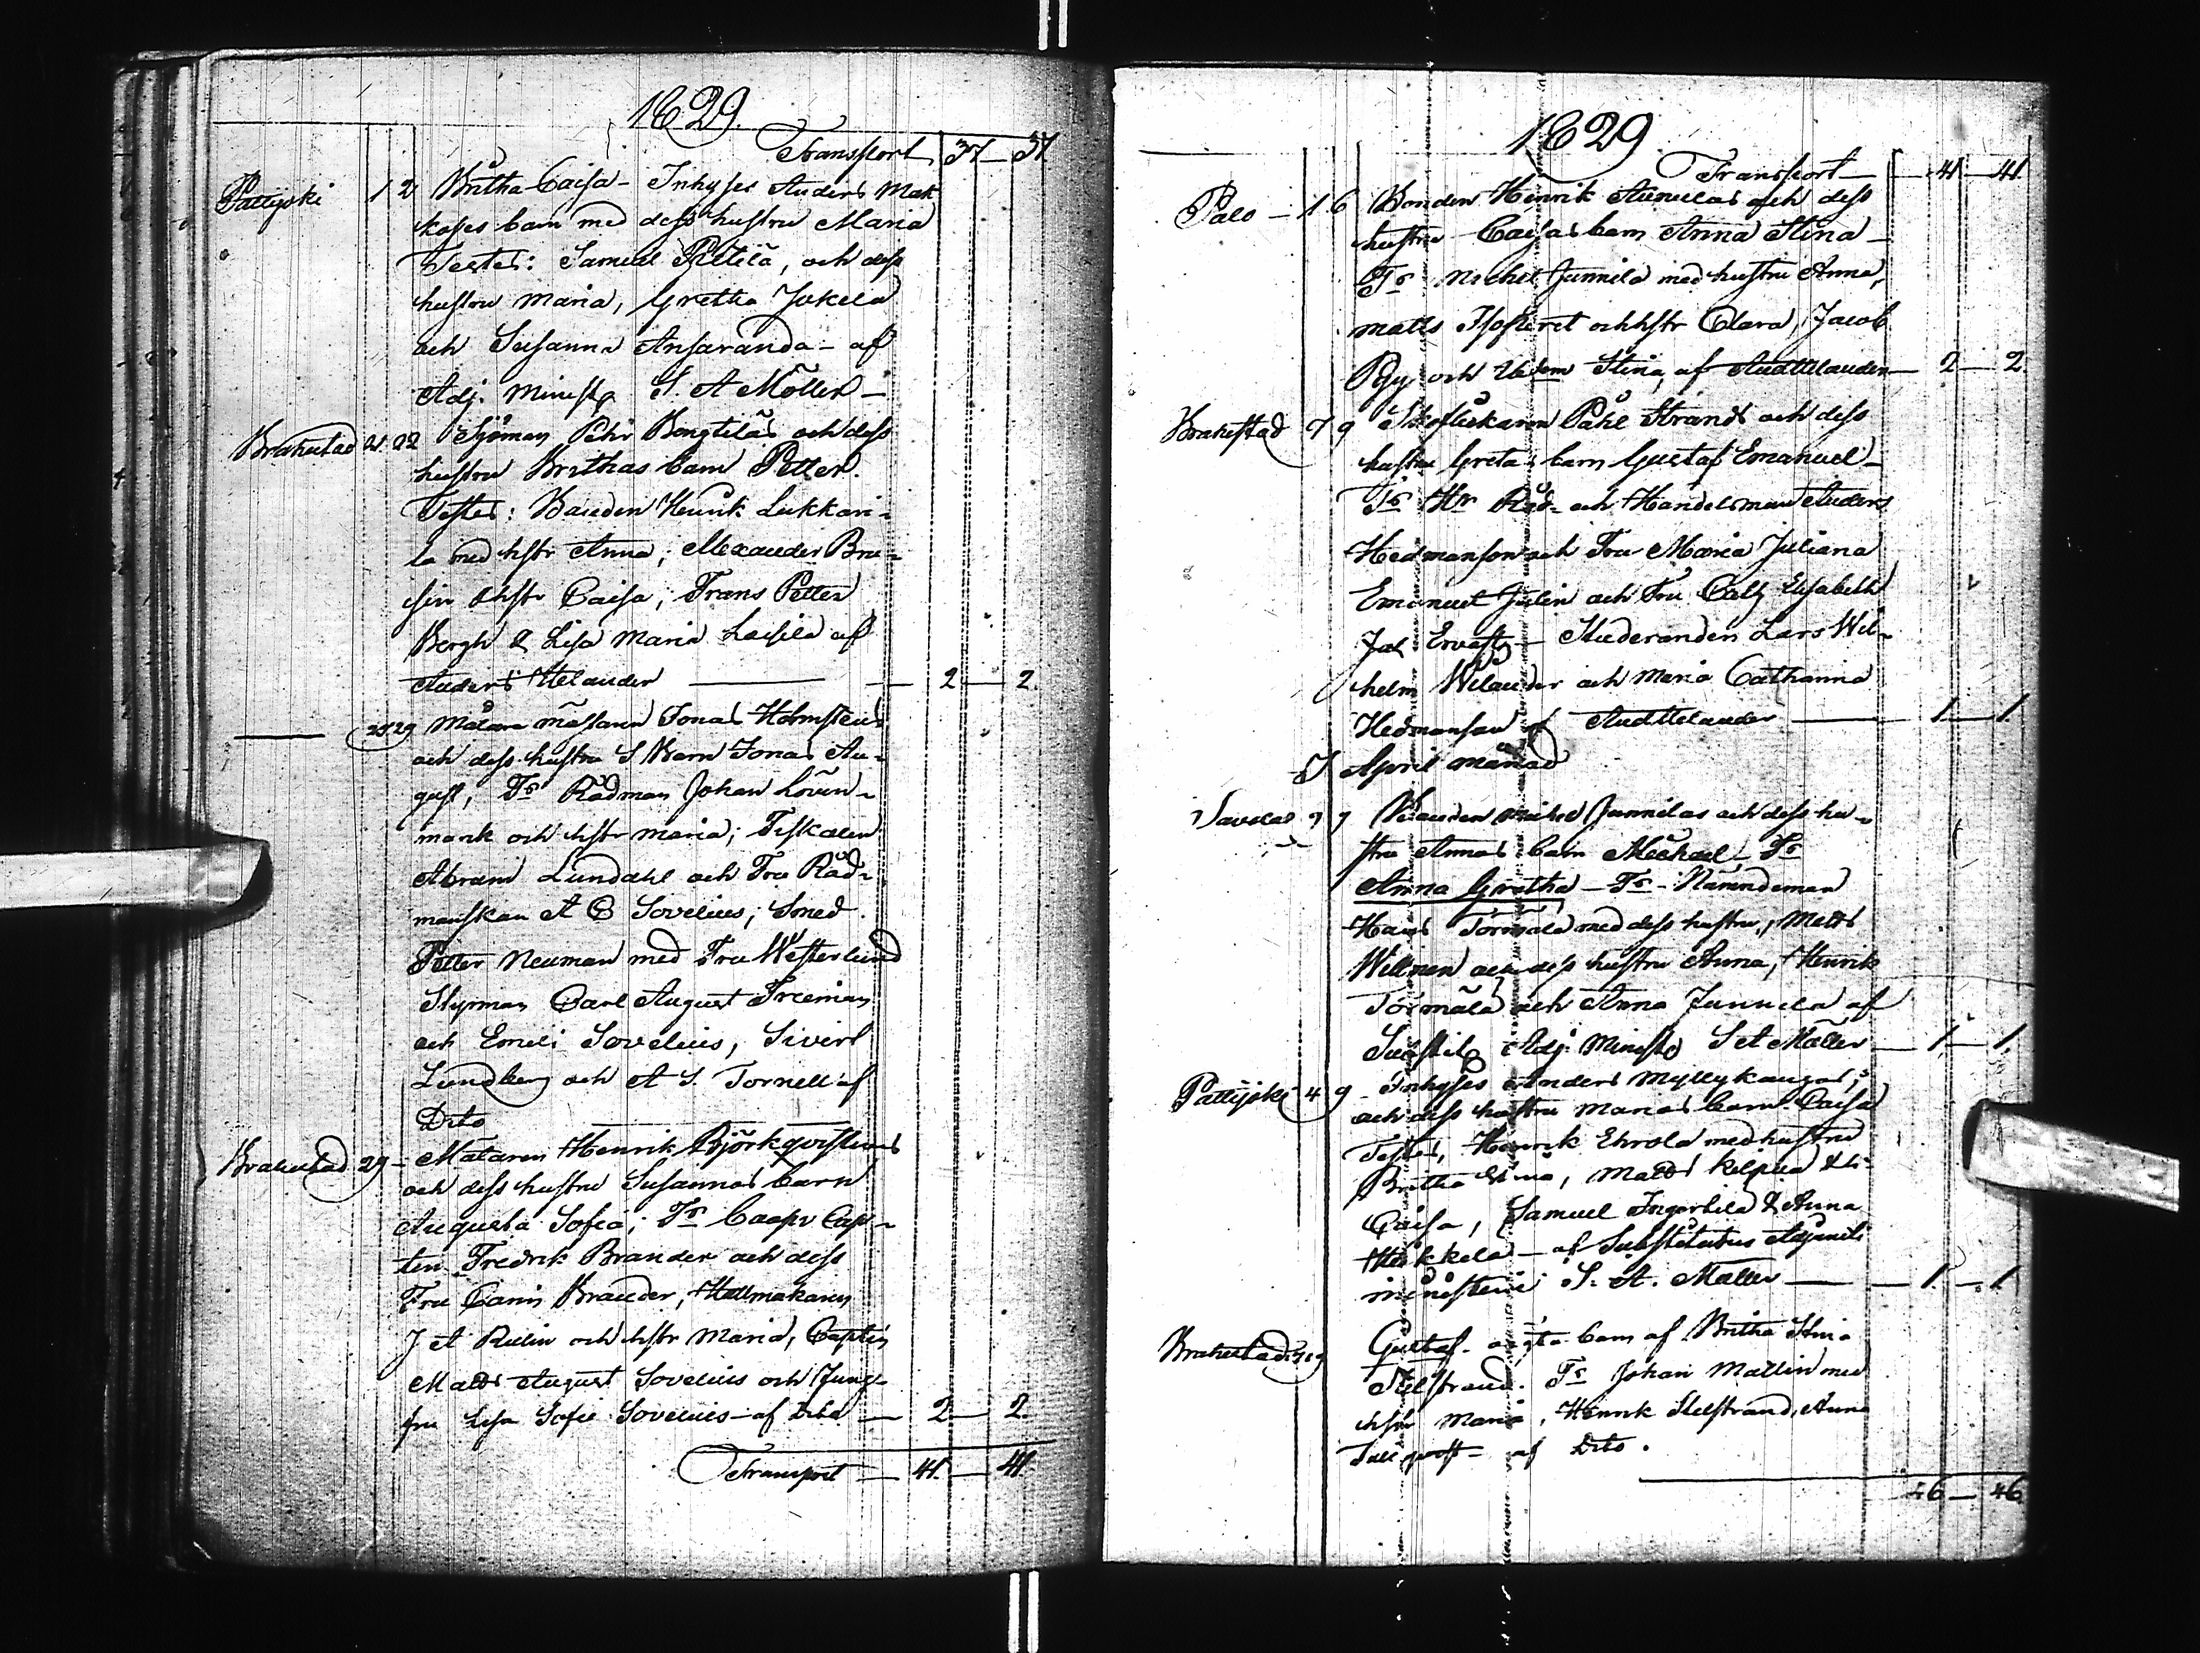 1829.
Transport 37 – 37
Pattijoki 1 2 Britha Caisa – Inhyses Anders Mak
koses barn med dess hustru Maria
Testes: Samuel Pietilä, och dess
hustru Maria, Gretha Jokela
och Susanna Ansaranda – af
Adj. Minist. S. A Möller –
Brahestad 21. 22 Sjöman Pehr Bengtiläs och dess
hustru Brithas barn Petter.
Testes: Bonden Henrik Lukkari-
la med hstr Anna; Alexander Bru-
sin & hstr Caisa; Frans Petter
Bergh & Lisa Maria Laisila af
Anders Helander — 2 — 2.
— 28 29 Målare Jonas Holmstens
och dess hustru S Barn Jonas Au-
gust, Ts Rådman Johan Löfvin-
mark och hstr Maria; Fiskalen
Abram Lundahl och Fru Råd-
manskan A C Sovelius; Smed
Petter Neuman med Fru Westerlund
Styrman Carl August Freeman
och Emeli Sovelius, Sivert
Lundberg och A S. Tornell af
Dito
Brahestad 29 – Målaren Henrik Björkqvistens
och dess hustru Susannas barn
Augusta Sofia; Ts Coopv Cap-
ten Fredrik Brander och dess
Fru Carin Brander, Hattmakaren
J A Rulin och hstr Maria, Captein
Matts August Sovelius och Jung-
fru Lisa Sofie Sovelius – af Dito — 2 — 2.
Transport — 41. — 41.
1829
Transport — 41 — 41.
Palo – 1. 6 Bonden Henrik Aunulas och dess
hustru Caisas barn Anna Stina –
Ts Michel Junnila med hustru Anna,
Matts och hstr Clara, Jacob
och Stina, af And Helander — 2 — 2
Brahestad 7 9 Skoflickaren Påhl Strands och dess
hustru Gretas barn Gustaf Emanuel –
Ts Hr Råd- och Handelsman Anders
Hedmanson och Fru Maria Juliana
Emanuel Julin och Fru Elisabeth
Ervast – Studeranden Lars Wil-
helm Welander och Maria Catharina
Hedmanson af And Helander — 1. — 1.
April månad
Savolax 7 Bonden Michel Junnilas och dess hu-
stru Annas barn Michael – Ts
Anna Gretha – Ts – Nämndeman
Hans Törmälä med dess hustru, Matts
Willman och dess hustru Anna, Henrik
Törmälä och Anna Junnila af
Adj. Minist S A Möller — 1. — 1.
Pattijoki 4 9 Inhyses Anders Myllykangas,
och dess hustru Marias barn. Caisa
Testes, Henrik Ehrola med hustru
Britha Stina, Matts Kilpua & Li-
Caisa, Samuel Ingertila & Anna
Heikkela – af Substitutus Adjuncti
ministerii S. A. Möller — 1. — 1.
Brahestad Gustaf – oägta barn af Britha Stina
Ts Johan Mallin med
hstr Maria, Henrik Stelstrand, Anna
af Dito.
46 — 46